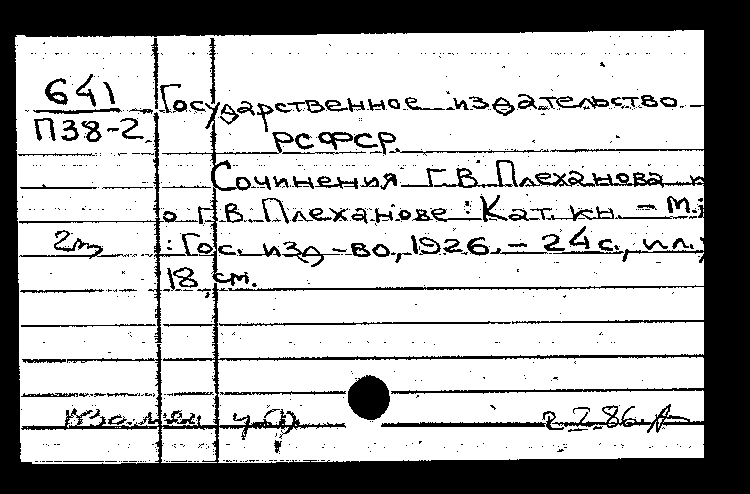 641
П38-2
Государственное издательство
РСФСР.
Сочинения Г.В. Плеханова и
о Г.В. Плеханове : Кат. кн. – М.;
: Гос. изд-во, 1926. – 24 с., ил.;
18 см.
2т
Взамен